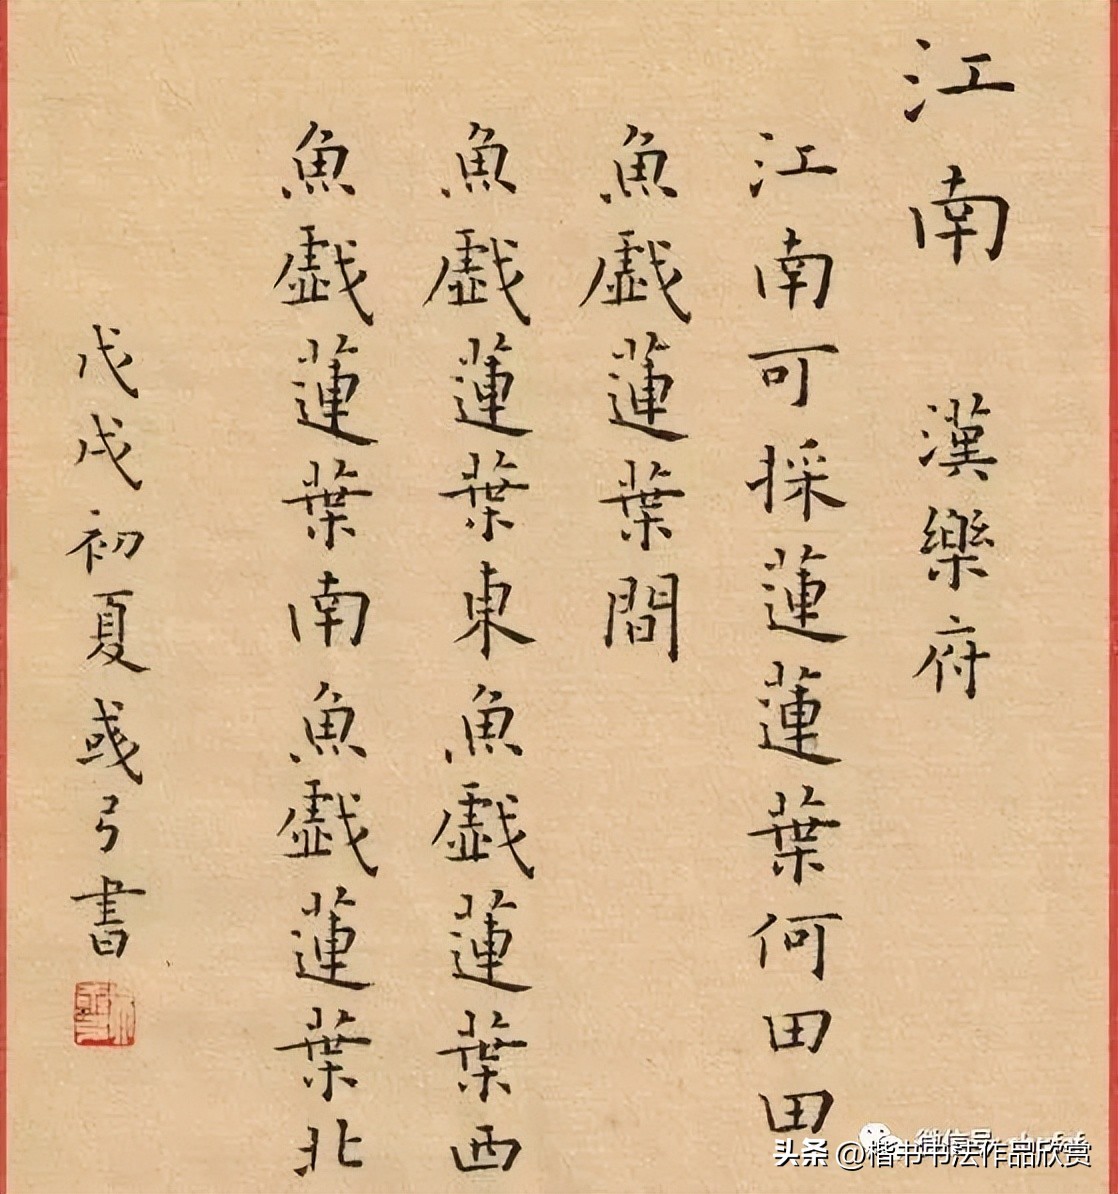 江南 漢樂府
江南可採蓮蓮葉何田田
魚戯蓮葉間
魚戯蓮葉東魚戯蓮葉西
魚戯蓮葉南魚戯蓮葉北
戊戌初夏彧弓書
头条 @楷书书法作品欣赏